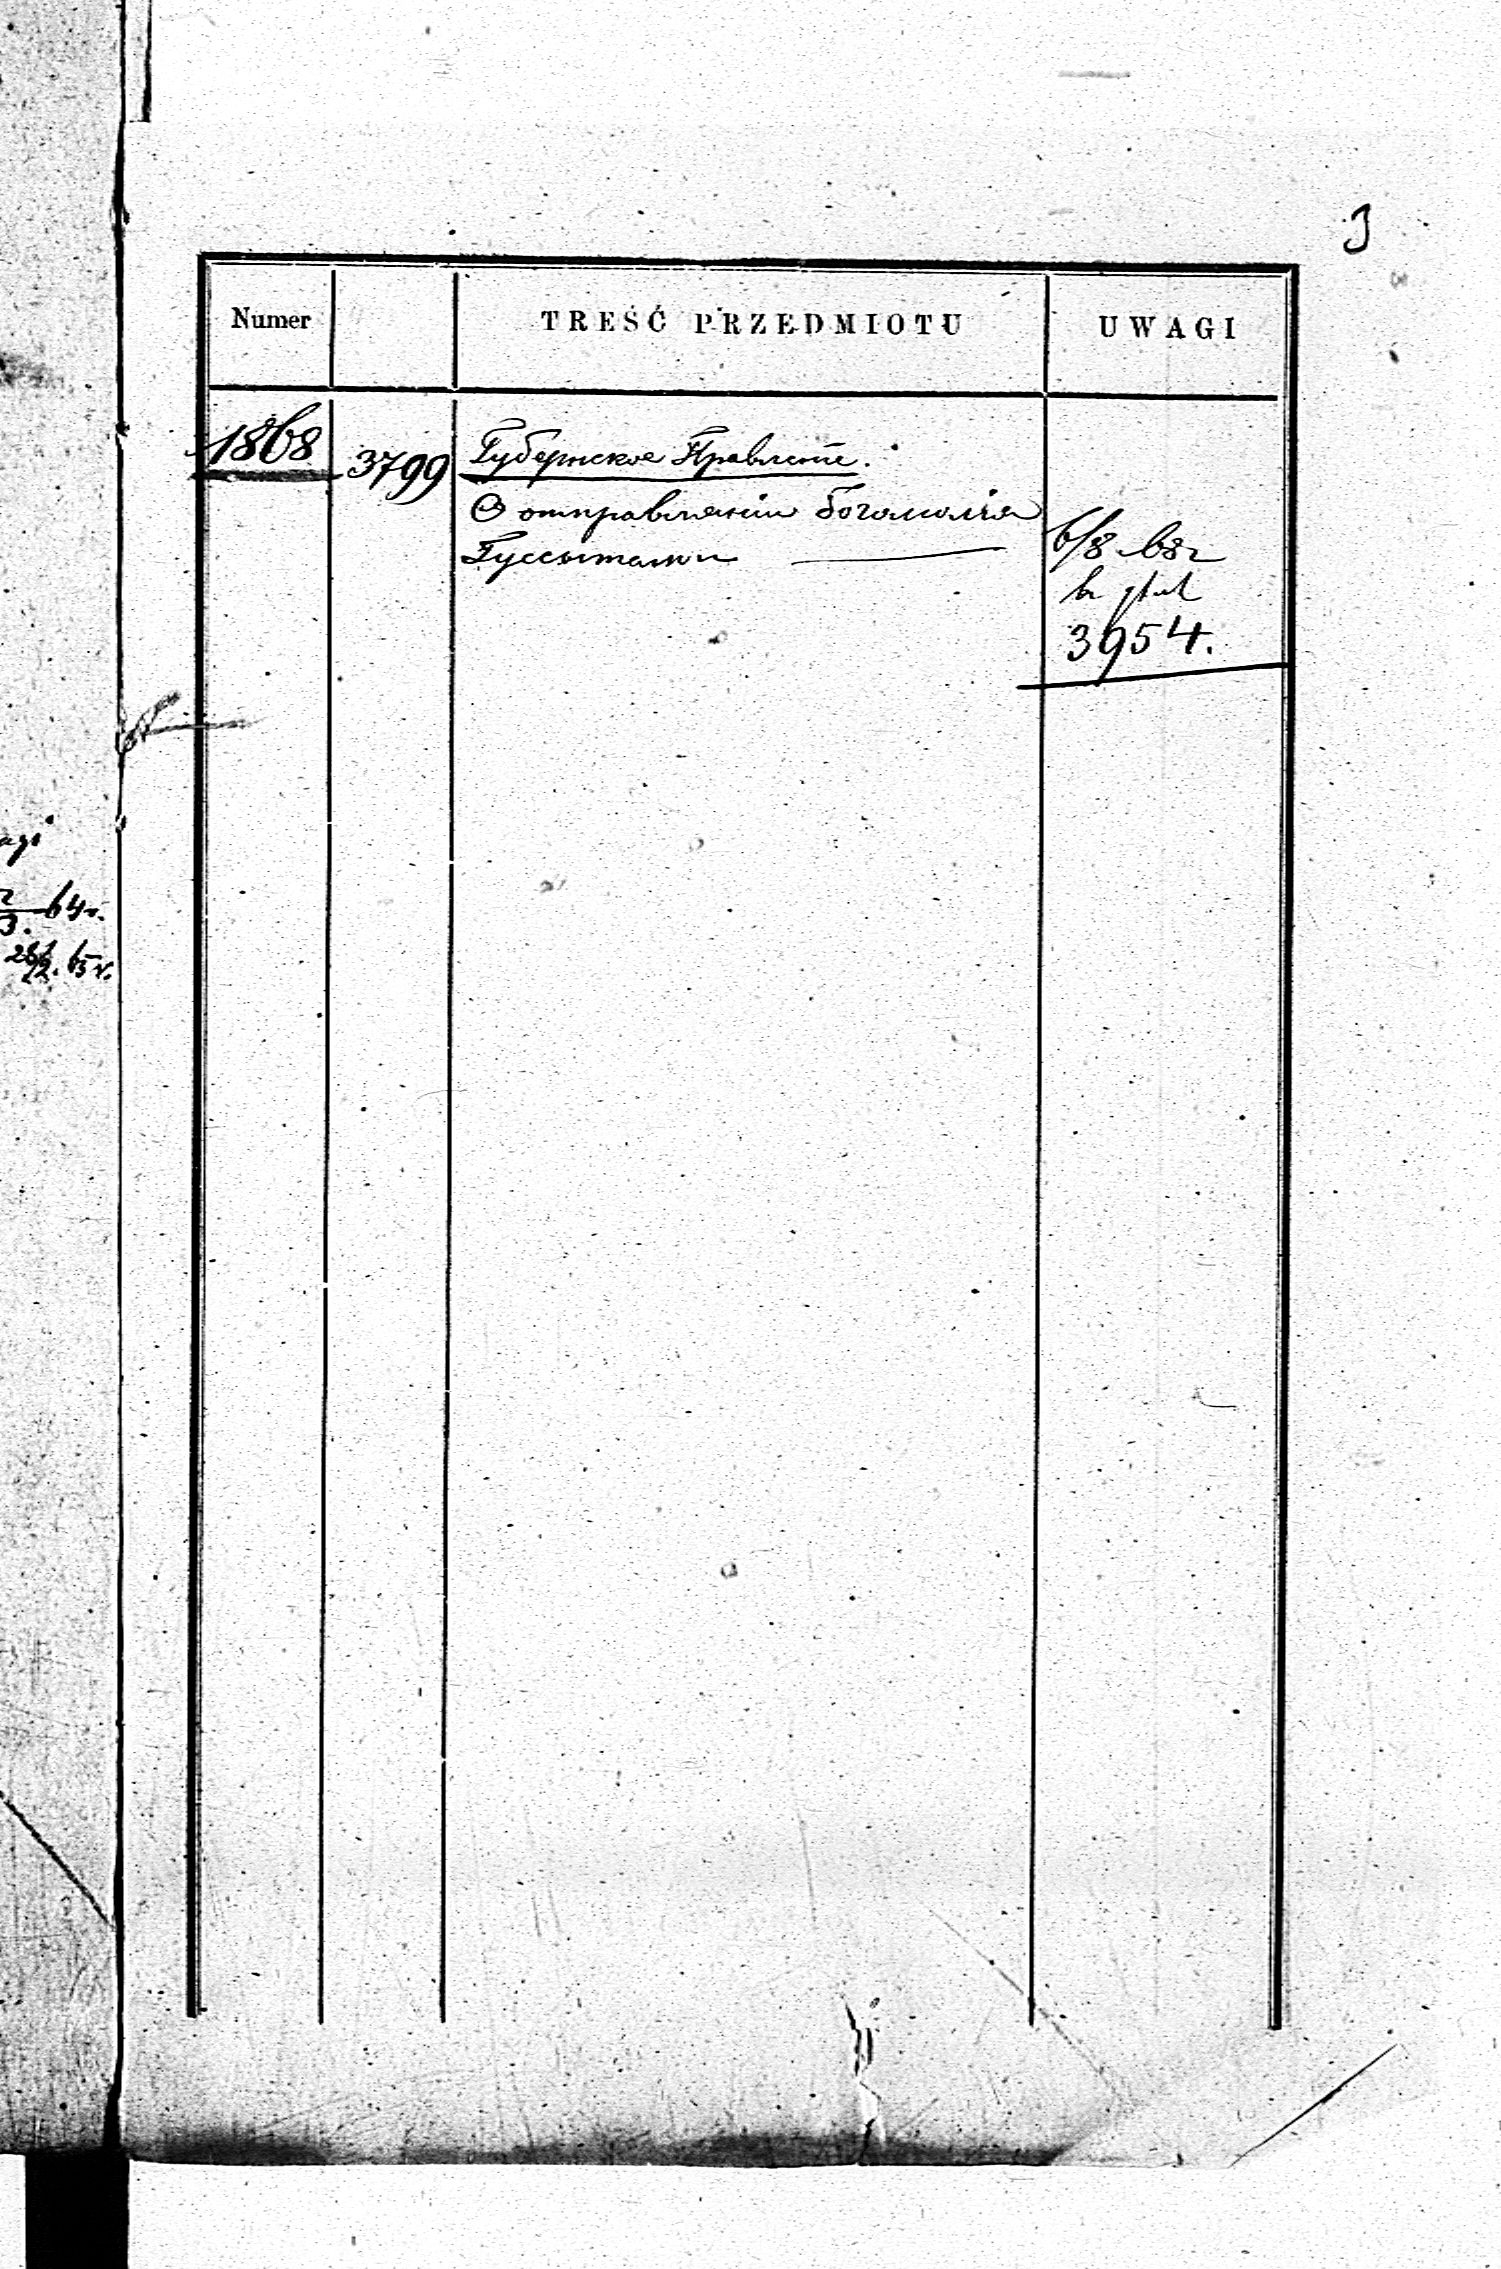 3
Numer TREŚĆ PRZEDMIOTU UWAGI
1868 3799 Губернское Правление.
О отправлении богомолия
Гусситами
6/8 68 г
3954.
64 г.